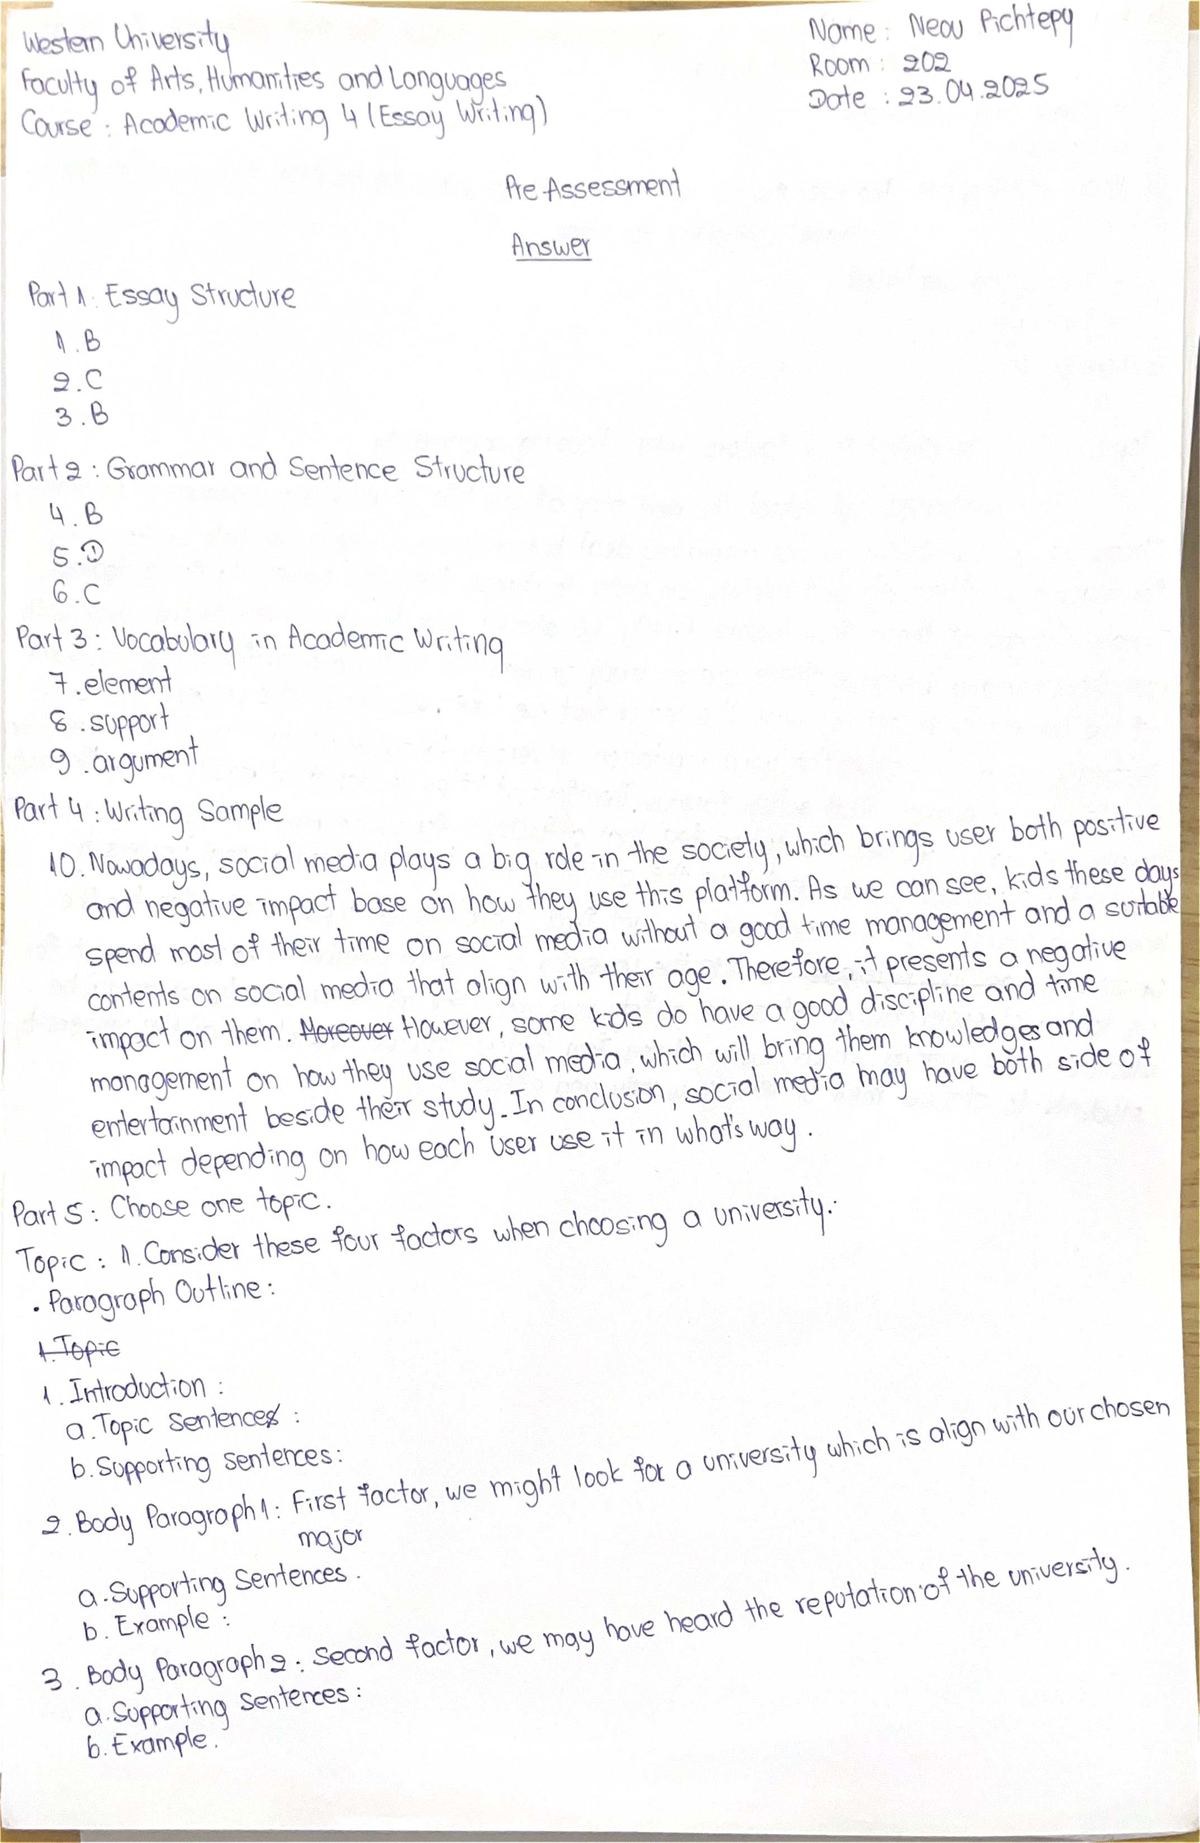 Western University
Faculty of Arts, Humanities and Languages
Course : Academic Writing 4 (Essay Writing)
Name : Neou Pichtepy
Room : 202
Date : 23.04.2025
Pre Assessment
Answer
Part 1 : Essay Structure
1. B
2. C
3. B
Part 2 : Grammar and Sentence Structure
4. B
5. D
6. C
Part 3 : Vocabulary in Academic Writing
7. element
8. support
9. argument
Part 4 : Writing Sample
10. Nowadays, social media plays a big role in the society, which brings user both positive
and negative impact base on how they use this platform. As we can see, kids these days
spend most of their time on social media without a good time management and a suitable
contents on social media that align with their age. Therefore, it presents a negative
impact on them. Moreover However, some kids do have a good discipline and time
management on how they use social media, which will bring them knowledges and
entertainment beside their study. In conclusion, social media may have both side of
impact depending on how each user use it in what's way.
Part 5 : Choose one topic.
Topic : 1. Consider these four factors when choosing a university.
• Paragraph Outline :
1. Topic
1. Introduction :
a. Topic Sentences :
b. Supporting sentences :
2. Body Paragraph 1 : First factor, we might look for a university which is align with our chosen
major
a. Supporting Sentences .
b. Example :
3. Body Paragraph 2 : Second factor, we may have heard the reputation of the university.
a. Supporting Sentences :
b. Example .